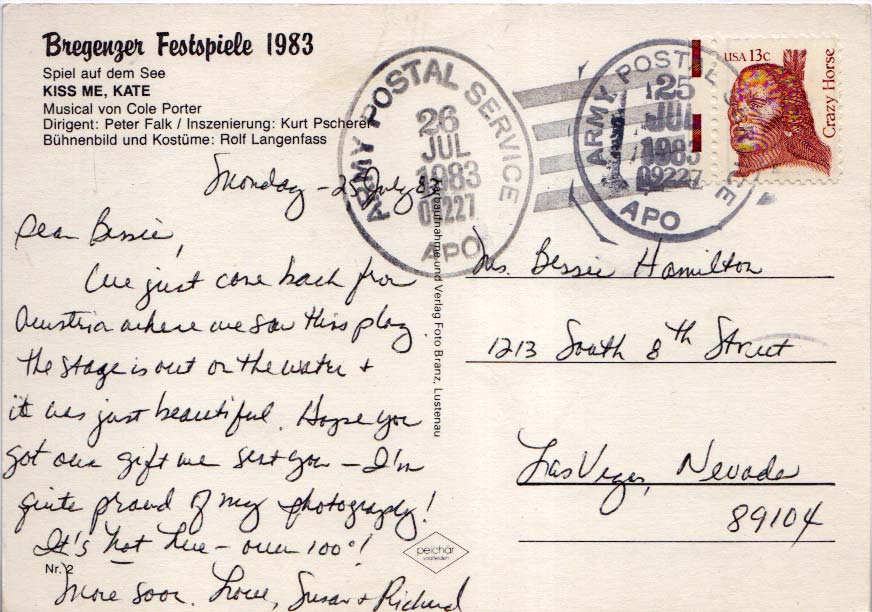 Bregenzer Festspiele 1983
Spiel auf dem See
KISS ME, KATE
Musical von Cole Porter
Dirigent: Peter Falk / Inszenierung: Kurt Pscherer
Bühnenbild und Kostüme: Rolf Langenfass
Monday – 25 July 83
Dear Bessie,
We just came back from
Austria where we saw this play
the stage is out on the water +
it was just beautiful. Hope you
got our gift we sent you – I'm
quite proud of my photography!
It's hot here – over 100°!
More soon. Love, Susan + Richard
Nr. 2
peichär
Farbaufnahme und Verlag Foto Branz, Lustenau
ARMY POSTAL SERVICE
26
JUL
1983
09227
APO
ARMY POSTAL SERVICE
25
JUL
1983
09227
APO
USA 13c
Crazy Horse
Ms. Bessie Hamilton
1213 South 8th Street
Las Vegas, Nevada
89104